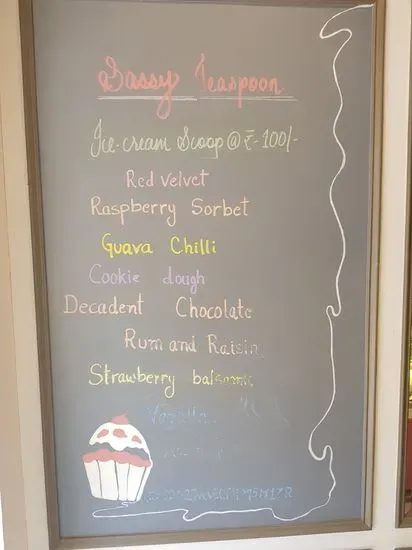 Sassy Teaspoon
Ice-cream Scoop @ ₹-100/-
Red Velvet
Raspberry Sorbet
Guava Chilli
Cookie dough
Decadent Chocolate
Rum and Raisin
Strawberry balsamic
Vanilla